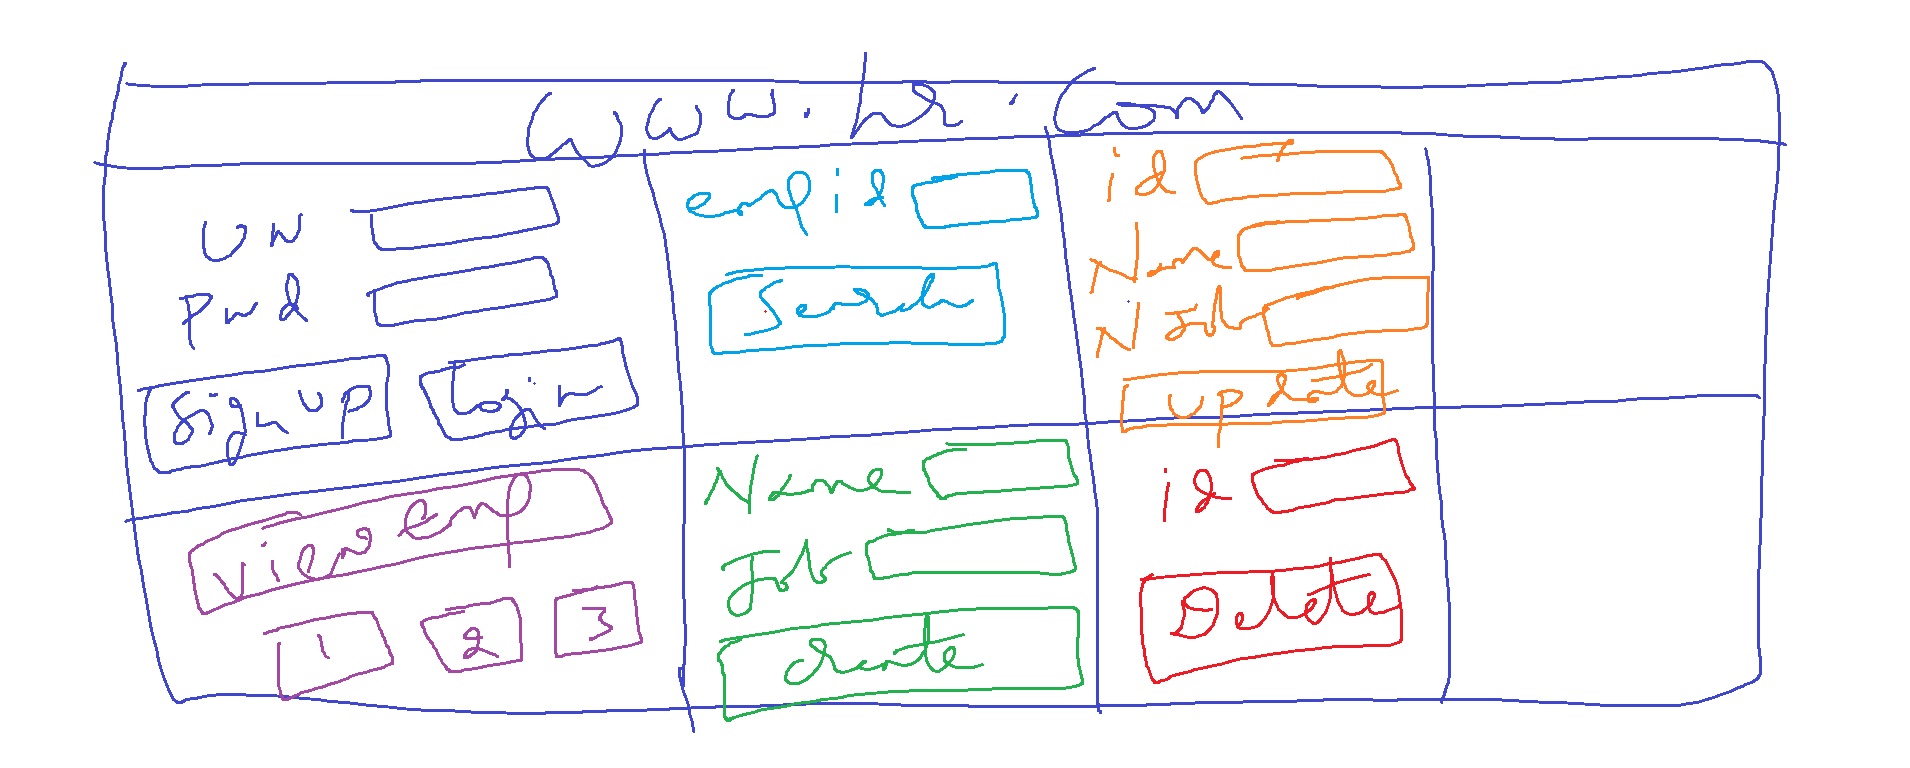 www.hr.com
UN
Pwd
Sign up Login
emp id
Search
id
Name
N Job
update
view emp
1 2 3
Name
Job
create
id
Delete